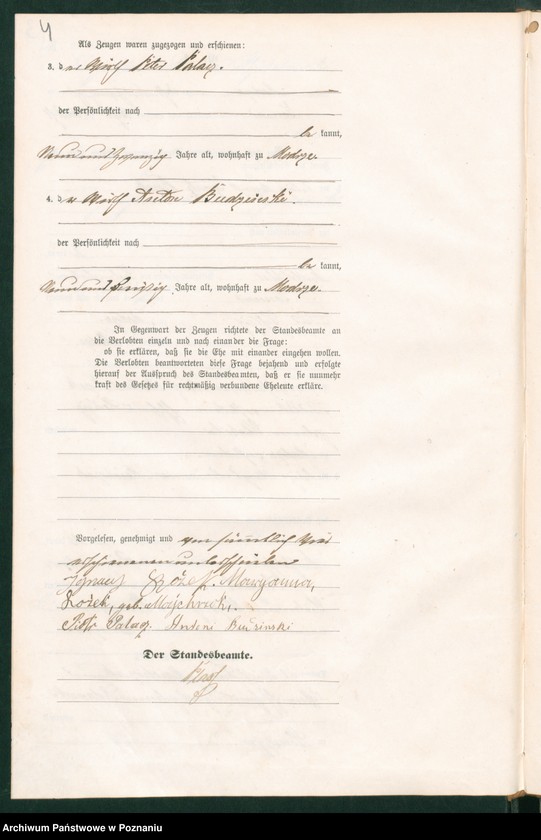 4
Als Zeugen waren zugezogen und erschienen:
3. der Wirth Peter Palacz.
der Persönlichkeit nach
be kannt,
neunundzwanzig Jahre alt, wohnhaft zu Modrze.
4. der Wirth Anton Budzinski.
der Persönlichkeit nach
be kannt,
Jahre alt, wohnhaft zu Modrze.
In Gegenwart der Zeugen richtete der Standesbeamte an
die Verlobten einzeln und nach einander die Frage:
ob sie erklären, daß sie die Ehe mit einander eingehen wollen.
Die Verlobten beantworteten diese Frage bejahend und erfolgte
hierauf der Ausspruch des Standesbeamten, daß er sie nunmehr
kraft des Gesetzes für rechtmäßig verbundene Eheleute erkläre.
Vorgelesen, genehmigt und von sämmtlich
erschienenen unterschrieben
Ignacy Maryanna,
geb. Majchrzak,
Piotr Palacz Antoni Budzinski
Der Standesbeamte.
Archiwum Państwowe w Poznaniu